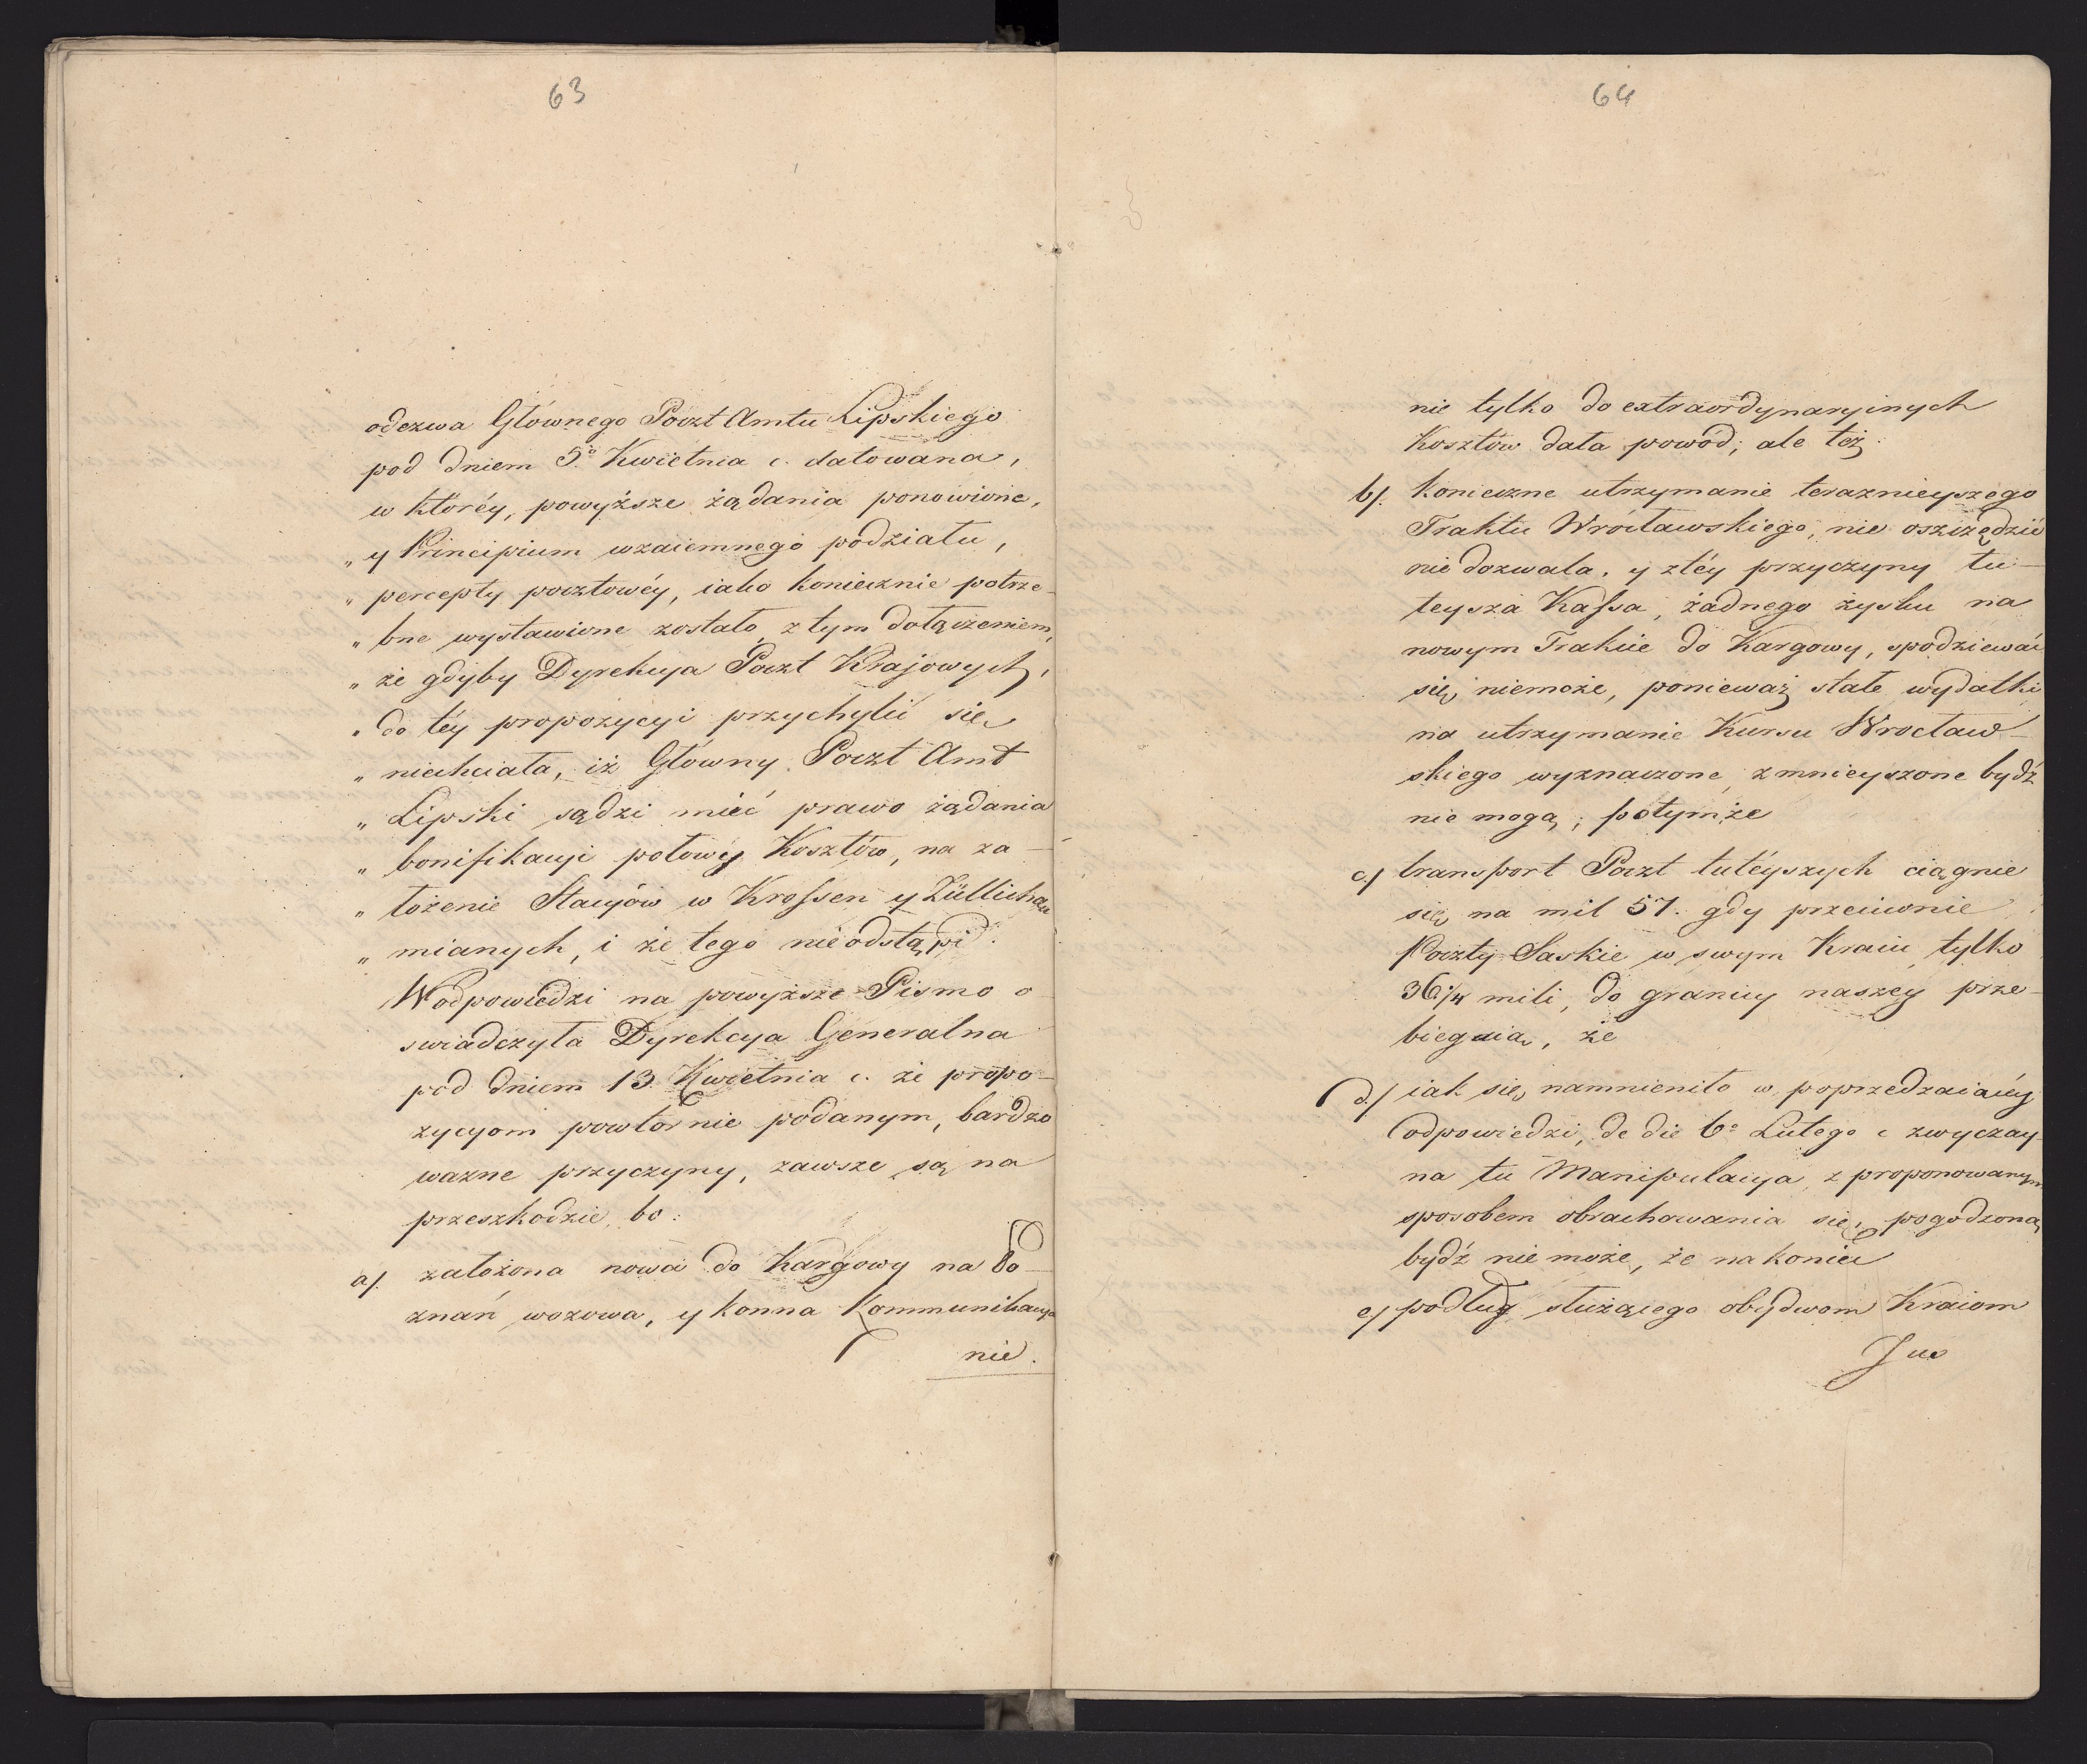 63
odezwa Głównego Poczt Amtu Lipskiego
pod dniem 5º Kwietnia c. datowana,
w któréy, powyższe żądania ponowione,
„ y Principium wzaiemnego podziału,
„ percepty pocztowéy, iako koniecznie potrze-
„ bne wystawione zostało, z tym dołączeniem,
„ że gdyby Dyrekcya Poczt Krajowych,
„ do téy propozycyi przychylić się
„ niechciała, iż Główny Poczt Amt
„ Lipski sądzi mieć prawo żądania
„ bonifikacyi połowy Kosztów, na za-
„ łożenie Stacyów w Krossen y Züllichau
„ mianych, i że tego nieodstąpi.
W odpowiedzi na powyższe Pismo o-
swiadczyła Dyrekcya Generalna
pod dniem 13. Kwietnia c. że propo-
zycyom powtórnie podanym, bardzo
wazne przyczyny, zawsze są na
przeszkodzie, bo:
a). założona nowa do Kargowy na Po-
znań wozowa, y konna Kommunikacya
nie.
64
nie tylko do extraordynaryinych
Kosztów dała powód; ale też:
b). Konieczne utrzymanie teraznieyszego
Traktu Wrocławskiego, nie oszczędzić
nie dozwala, y z téy przyczyny tu-
teysza Kassa, żadnego zysku na
nowym Trakcie do Kargowy, spodziewać
się niemoże, ponieważ stałe wydatki
na utrzymanie Kursu Wrocław-
skiego wyznaczone, zmnieyszone bydź
nie mogą; potym że
c.) transport Poczt tutéyszych ciągnie
się na mil 57. gdy przeciwnie
Poczty Saskie w swym Kraiu tylko
36¼ mili, do granicy naszey prze-
biegaią, że
d.) iak się namnieniło w poprzedzaiącéy
odpowiedzi, de die 6º Lutego c zwyczay-
na tu Manipulacya, z proponowanym
sposobem obrachowania się, pogodzoną
bydź nie może, że nakoniec
e) podług służącego obydwom Kraiom
Jus